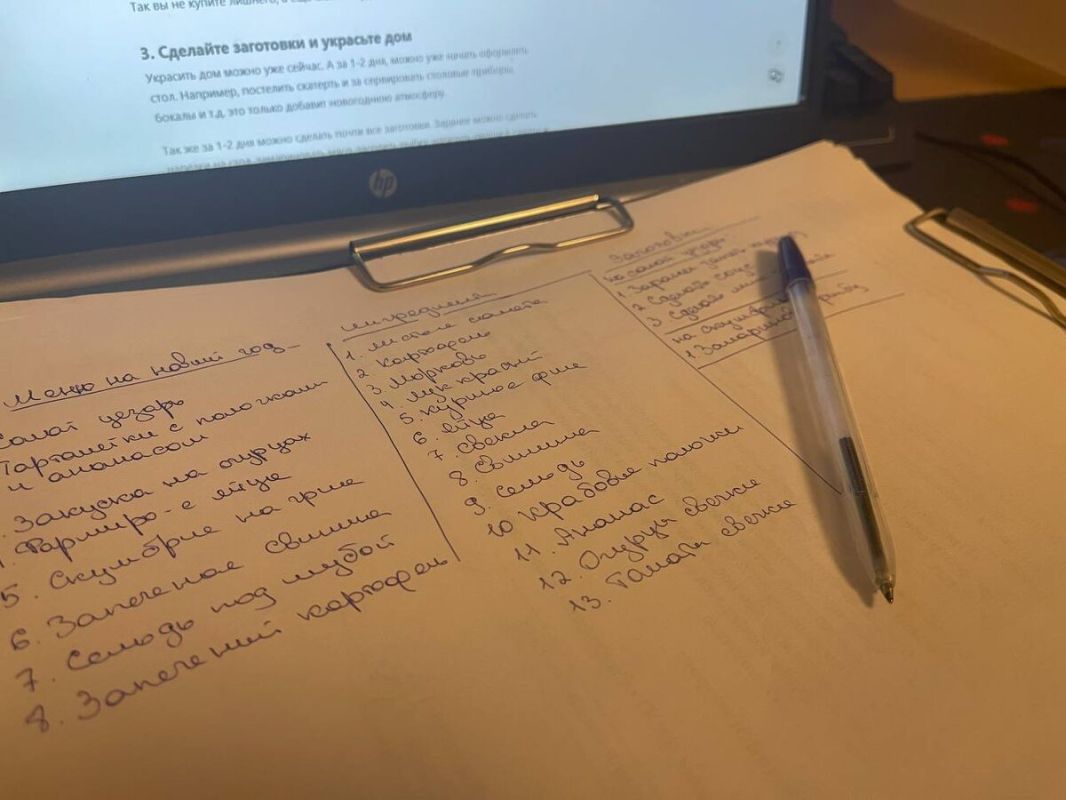 Так вы не купите лишнего,
3. Сделайте заготовки и украсьте дом
Украсить дом можно уже сейчас. А за 1-2 дня, можно уже начать оформлять
стол. Например, постелить скатерть и за сервировать столовые приборы,
бокалы и т.д, это только добавит новогоднюю атмосферу.
Так же за 1-2 дня можно сделать почти все заготовки. Заранее можно сделать
hp
Меню на новий год
Салат цезарь
Тарталетки с палочками
и ананасом
Закуска на огурцах
Фарширо-е яйца
5. Скумбрие на гриле
6. Запеченая свинина
7. Сельодь под шубой
8. Запечений картофель
ингредиенты
1. листья салата
2 Картофель
3. Морковь
4. Лук красний
5. куриное филе
6. яйца
7. свекла
8. Свинина
9. Сельодь
10 Крабовие палочки
11. Ананас
12. Огурци свежие
13. Томати свежие
Заготовки
на салат цезарь
1 Заранее
2 Сделать соус
3 Сделать
на скумбрию
1. Замариновать рибу